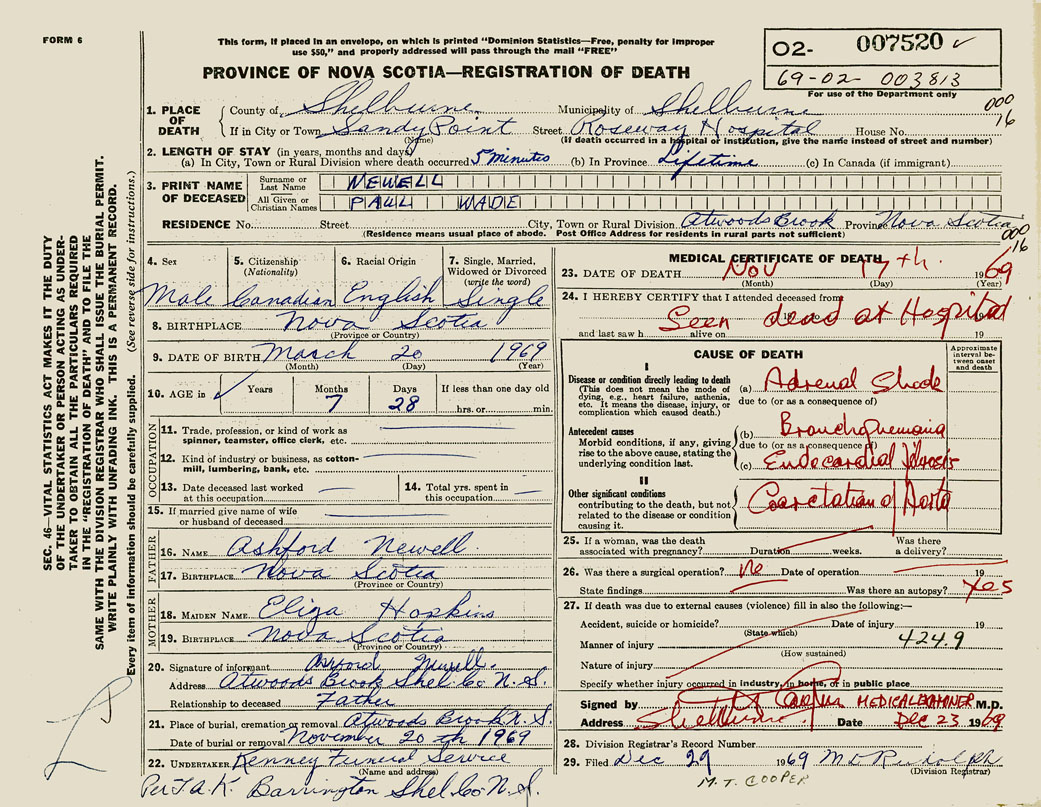 FORM 6
This form, if placed in an envelope, on which is printed "Dominion Statistics—Free, penalty for improper
use $50," and properly addressed will pass through the mail "FREE"
PROVINCE OF NOVA SCOTIA—REGISTRATION OF DEATH
02- 007520 ✓
69-02- 003813
For use of the Department only
000
16
1. PLACE OF DEATH
County of Shelburne Municipality of Shelburne
If in City or Town Sandy Point Street Roseway Hospital House No.
(Name) (If death occurred in a hospital or institution, give the name instead of street and number)
2. LENGTH OF STAY (in years, months and days)
(a) In City, Town or Rural Division where death occurred 5 minutes (b) In Province Lifetime (c) In Canada (if immigrant)
3. PRINT NAME OF DECEASED
Surname or Last Name NEWELL
All Given or Christian Names PAUL WADE
RESIDENCE No. Street City, Town or Rural Division Atwoods Brook Province Nova Scotia
(Residence means usual place of abode. Post Office Address for residents in rural parts not sufficient)
000
16
SEC. 46—VITAL STATISTICS ACT MAKES IT THE DUTY
OF THE UNDERTAKER OR PERSON ACTING AS UNDER-
TAKER TO OBTAIN ALL THE PARTICULARS REQUIRED
IN THE "REGISTRATION OF DEATH" AND TO FILE THE
SAME WITH THE DIVISION REGISTRAR WHO SHALL ISSUE THE BURIAL PERMIT.
WRITE PLAINLY WITH UNFADING INK. THIS IS A PERMANENT RECORD.
Every item of information should be carefully supplied. (See reverse side for instructions.)
4. Sex 5. Citizenship (Nationality) 6. Racial Origin 7. Single, Married, Widowed or Divorced (write the word)
Male Canadian English Single
8. BIRTHPLACE Nova Scotia
(Province or Country)
9. DATE OF BIRTH March 20 1969
(Month) (Day) (Year)
10. AGE in ✓ Years Months Days If less than one day old
7 28 hrs. or min.
OCCUPATION
11. Trade, profession, or kind of work as
spinner, teamster, office clerk, etc.
12. Kind of industry or business, as cotton-
mill, lumbering, bank, etc.
13. Date deceased last worked
at this occupation
14. Total yrs. spent in
this occupation
15. If married give name of wife
or husband of deceased
FATHER
16. NAME Ashford Newell
17. BIRTHPLACE Nova Scotia
(Province or Country)
MOTHER
18. MAIDEN NAME Eliza Hopkins
19. BIRTHPLACE Nova Scotia
(Province or Country)
20. Signature of informant Newell
Address Atwoods Brook Shel. Co N.S.
Relationship to deceased Father
21. Place of burial, cremation or removal Atwoods Brook N.S.
Date of burial or removal November 20 th 1969
22. UNDERTAKER Kenney Funeral Service
(Name and address)
Barrington Shel. Co N.S.
MEDICAL CERTIFICATE OF DEATH
23. DATE OF DEATH Nov 17th. 1969
(Month) (Day) (Year)
24. I HEREBY CERTIFY that I attended deceased from
19 19
Seen dead at Hospital
and last saw h alive on 19
CAUSE OF DEATH
Approximate interval between onset and death
I
Disease or condition directly leading to death
(This does not mean the mode of
dying, e.g., heart failure, asthenia,
etc. It means the disease, injury, or
complication which caused death.)
(a) Adrenal
due to (or as a consequence of)
Antecedent causes
Morbid conditions, if any, giving
rise to the above cause, stating the
underlying condition last.
(b)
due to (or as a consequence of)
(c) Endocardial fibrosis
II
Other significant conditions
contributing to the death, but not
related to the disease or condition
causing it.
Coarctation of Aorta
25. If a woman, was the death
associated with pregnancy? Duration weeks. Was there
a delivery?
26. Was there a surgical operation? No Date of operation 19
State findings Was there an autopsy? Yes
27. If death was due to external causes (violence) fill in also the following:—
Accident, suicide or homicide? Date of injury 19
(State which)
Manner of injury 424.9
(How sustained)
Nature of injury
Specify whether injury occurred in industry, in home, or in public place
Signed by MEDICAL EXAMINER M.D.
Address Shelburne Date Dec 23 1969
28. Division Registrar's Record Number
29. Filed Dec 29 1969
(Division Registrar)
M. T. COOPER